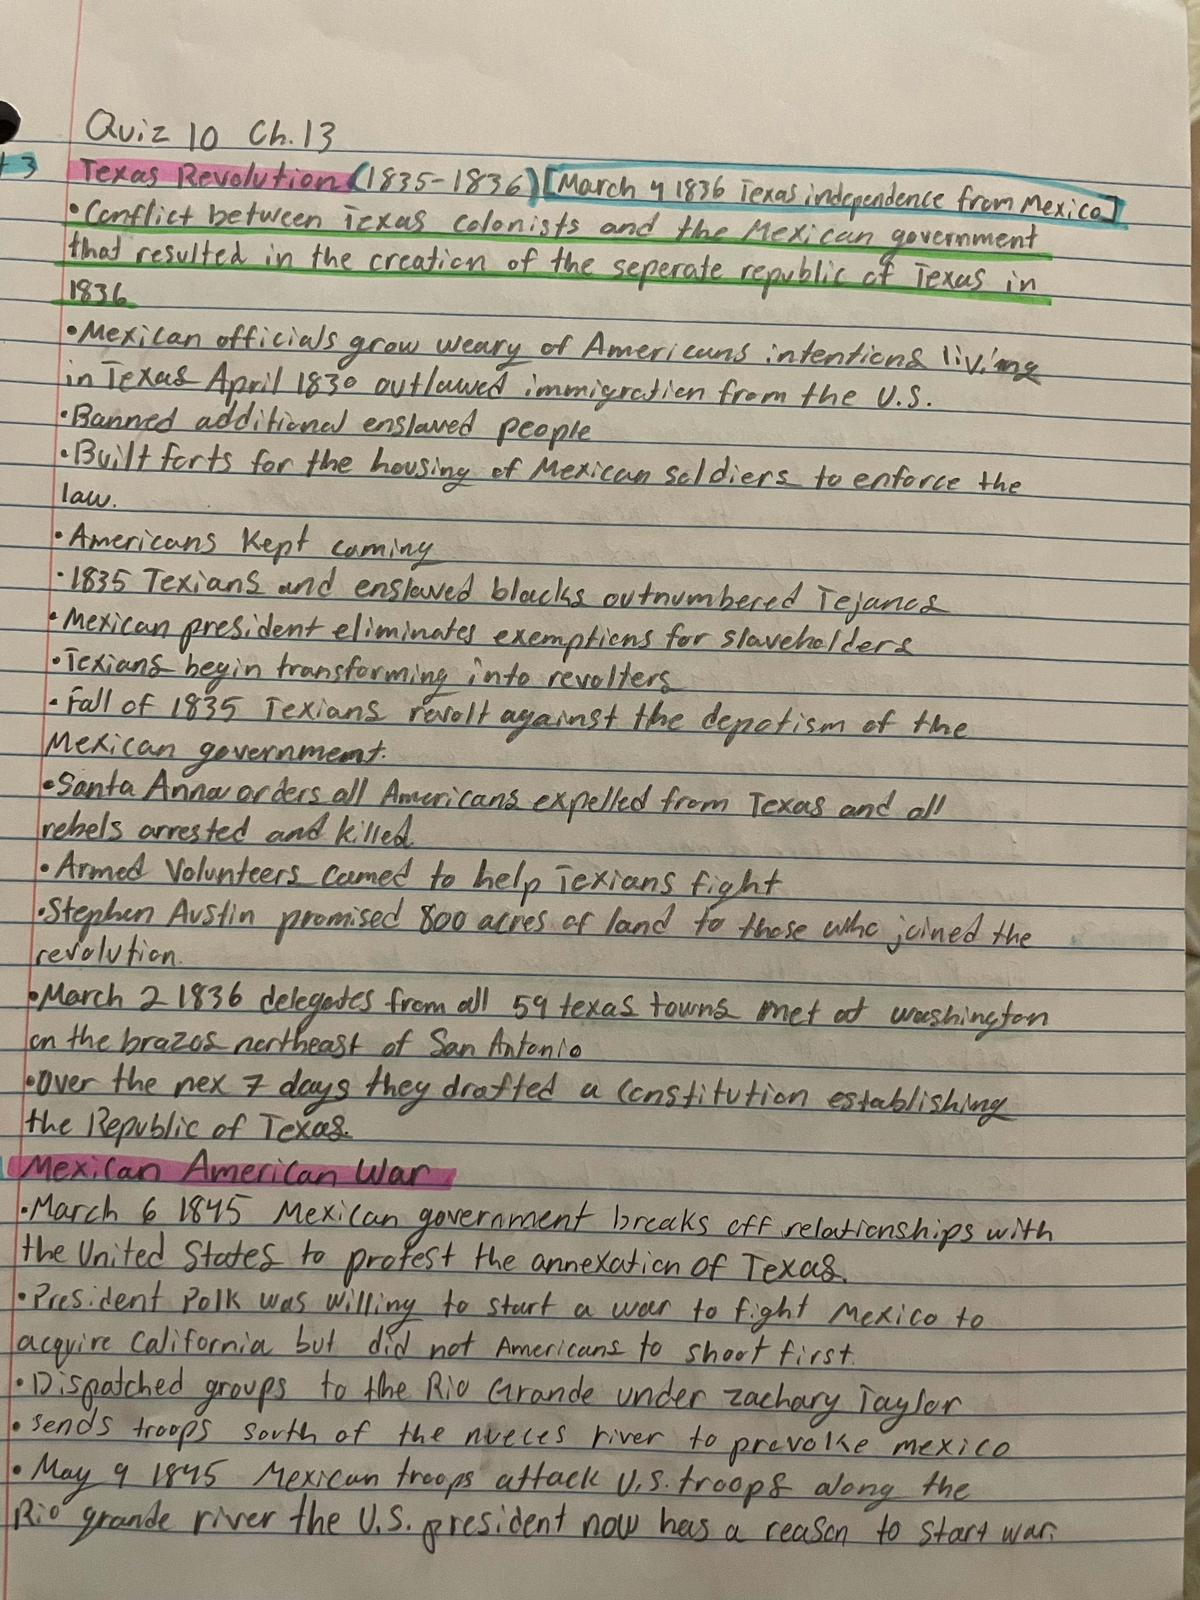 Quiz 10 Ch.13
3
Texas Revolution (1835-1836) [March 4 1836 Texas independence from Mexico]
•Conflict between Texas colonists and the Mexican government
that resulted in the creation of the seperate republic of Texas in
1836
•Mexican officials grow weary of Americans intentions living
in Texas April 1830 outlawed immigration from the U.S.
•Banned additional enslaved people
•Built forts for the housing of Mexican soldiers to enforce the
law.
•Americans Kept coming
•1835 Texians and enslaved blacks outnumbered Tejanos
•Mexican president eliminates exemptions for slaveholders
•Texians begin transforming into revolters
•Fall of 1835 Texians revolt against the depotism of the
Mexican government.
•Santa Anna orders all Americans expelled from Texas and all
rebels arrested and killed.
•Armed Volunteers camed to help Texians fight
•Stephen Austin promised 800 acres of land to those who joined the
revolution.
•March 2 1836 delegates from all 59 texas towns met at washington
on the brazos northeast of San Antonio
•Over the nex 7 days they drafted a Constitution establishing
the Republic of Texas.
Mexican American War
•March 6 1845 Mexican government breaks off relationships with
the United States to protest the annexation of Texas.
•President Polk was willing to start a war to fight Mexico to
acquire California but did not Americans to shoot first.
•Dispatched groups to the Rio Grande under Zachary Taylor
•sends troops south of the nueces river to provoke mexico
•May 9 1845 Mexican troops attack U.S. troops along the
Rio grande river the U.S. president now has a reason to start war.